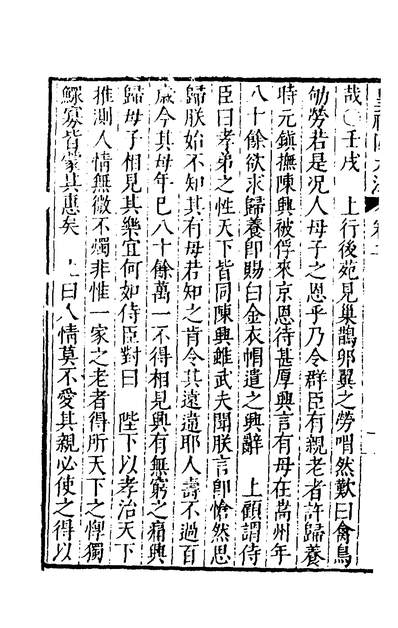 哉○壬戌　上行後苑見巢鵲卵翼之勞喟然歎曰禽鳥
劬勞若是况人母子之恩乎乃令群臣有親老者許歸養
時元鎮撫陳興被俘來京恩待甚厚興言有母在嵩州年
八十餘欲求歸養卽賜白金衣帽遣之興辭　上顧謂侍
臣曰孝弟之性天下皆同陳興雖武夫聞朕言卽愴然思
歸朕始不知其有母若知之肯令其遠遊耶人壽不過百
歲今其母年巳八十餘萬一不得相見興有無窮之痛興
歸母子相見其樂宜何如侍臣對曰　陛下以孝治天下
推測人情無微不燭非惟一家之老者得所天下之惸獨
鰥寡皆蒙其惠矣　上曰人情莫不愛其親必使之得以